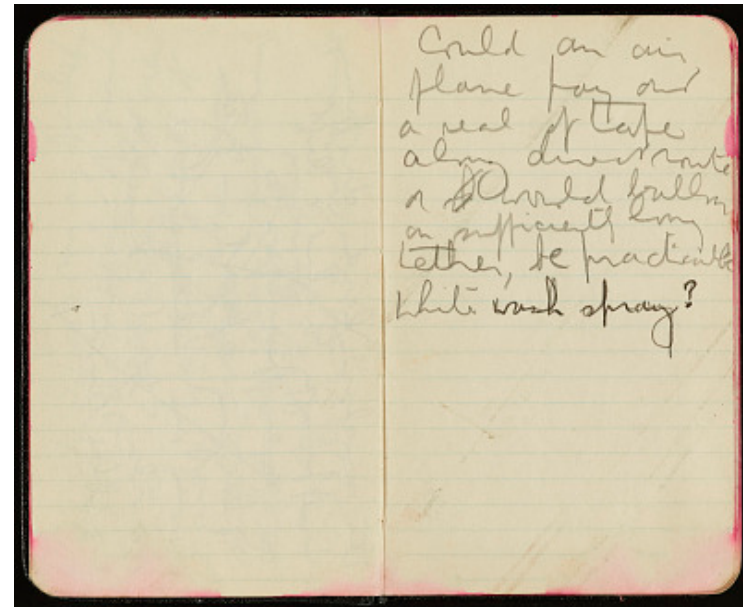 Could an air
plane pay out
a real of tape
along direct route
or would balloon
on sufficiently long
tether, be practicable
White wash spray?